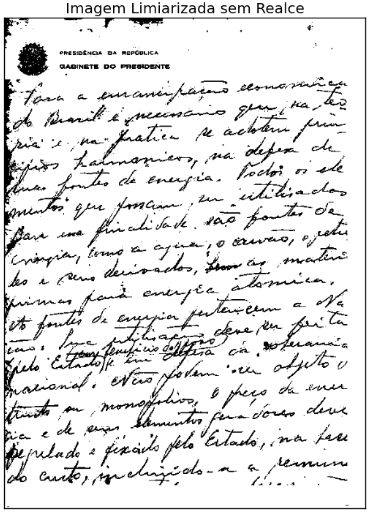 Imagem Limiarizada sem Realce
PRESIDÊNCIA DA REPÚBLICA
GABINETE DO PRESIDENTE
Para a emancipação economica
do Brasil é necessario que, na teo
ria e na pratica se adotem prin
cipios harmonicos, na defesa de
suas fontes de energia. Todos os ele
mentos que possam ser utilisados
para essa finalidade são fontes de
energia, como a agua, o carvão, o petro
leo e seus derivados, as materi
primas para energia atomica.
fontes de energia pertencem a Na
ção. Sua utilisação deve ser feita
pelo Estado, em beneficio do povo e em defesa da soberania
nacional. Não podem ser objeto
monopolios, o preço da ener
gia e de seus elementos geradores deve
regulado e fixado pelo Estado, na base
do custo, incluindo-se a remune